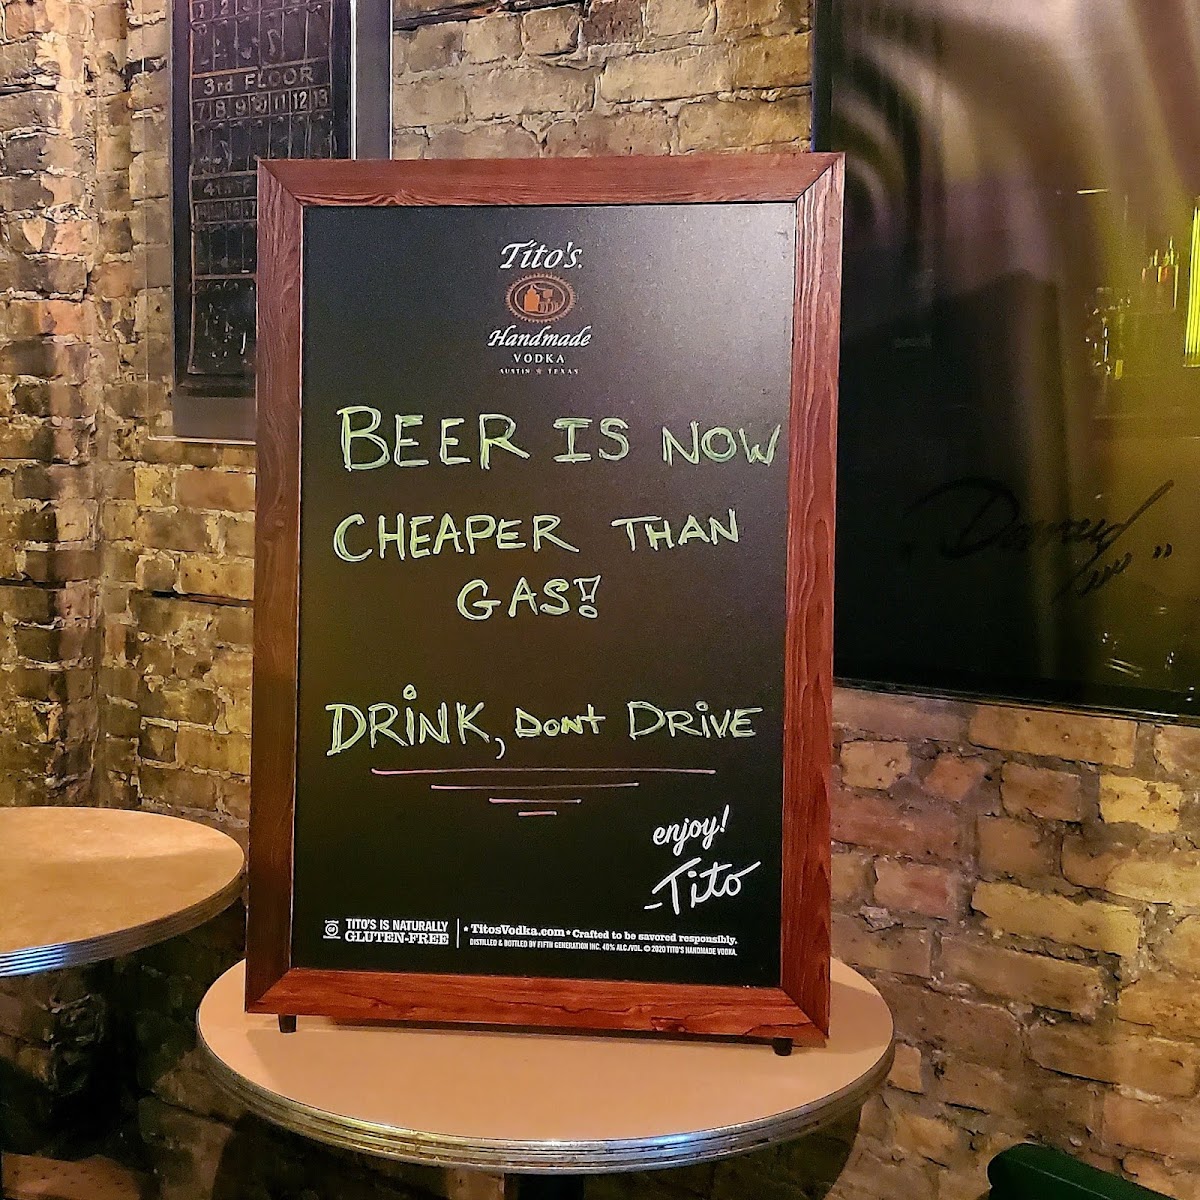 1 2 3
3rd FLOOR
7 8 9 10 11 12 13
Tito's
Handmade
VODKA
AUSTIN ★ TEXAS
BEER IS NOW
CHEAPER THAN
GAS!
DRiNK, DoNt DRiVE
enjoy!
-Tito
TITO'S IS NATURALLY
GLUTEN-FREE
• TitosVodka.com • Crafted to be savored responsibly.
DISTILLED & BOTTLED BY FIFTH GENERATION INC. 40% ALC./VOL. © 2020 TITO'S HANDMADE VODKA.